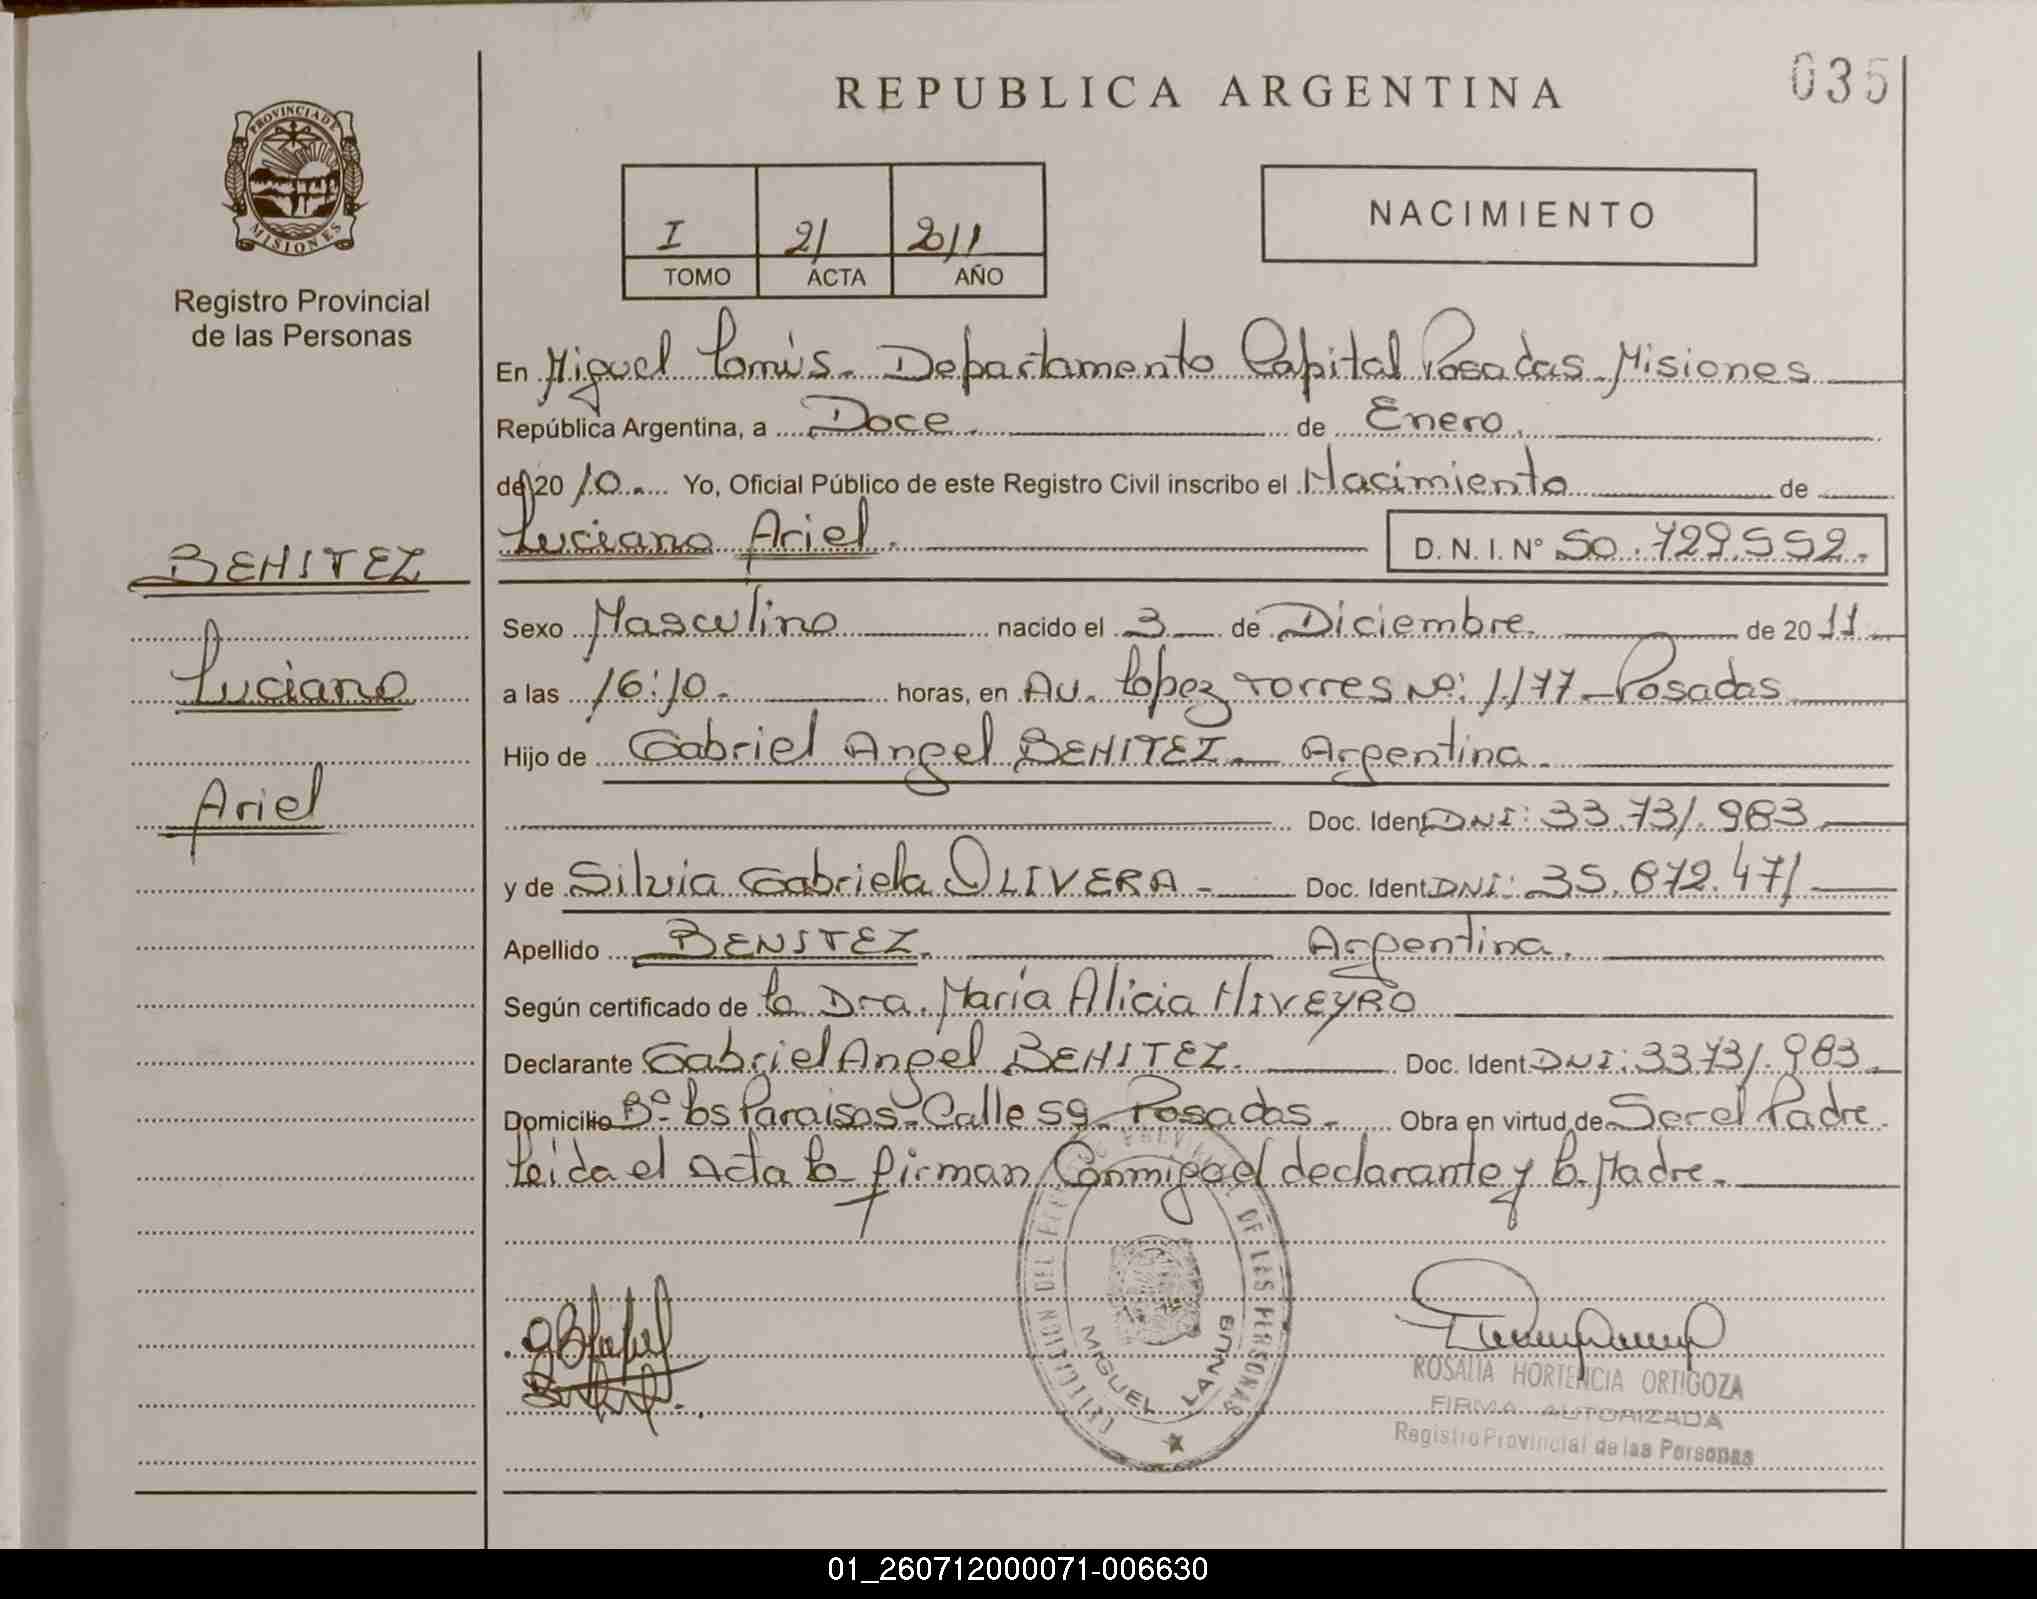 035
REPUBLICA ARGENTINA
PROVINCIA DE
MISIONES
Registro Provincial
de las Personas
I 21 2011
TOMO ACTA AÑO
NACIMIENTO
En Miguel Lanús - Departamento Capital Posadas - Misiones
República Argentina, a Doce de Enero
de 20 10 Yo, Oficial Público de este Registro Civil inscribo el Nacimiento de
Luciano Ariel D. N. I. N° 50.729.552.
BENITEZ
Luciano
Ariel
Sexo Masculino nacido el 3 de Diciembre de 2011
a las 16:10 horas, en Av. López Torres Nº: 1177 - Posadas
Hijo de Gabriel Angel BENITEZ - Argentina
Doc. Ident DNI: 33.731.983
y de Silvia Gabriela OLIVERA - Doc. Ident. DNI: 35.872.471
Apellido BENITEZ. Argentina.
Según certificado de la Dra. María Alicia NIVEYRO
Declarante Gabriel Angel BENITEZ. Doc. Ident. DNI: 33.731.983
Domicilio Bº los Paraisos - Calle 59 - Posadas. Obra en virtud de Ser el Padre
Leida el Acta la firman Conmigo el declarante y la Madre.
DE LAS PERSONAS
MIGUEL LANUS
ROSALIA HORTENCIA ORTIGOZA
FIRMA AUTORIZADA
Registro Provincial de las Personas
01_260712000071-006630